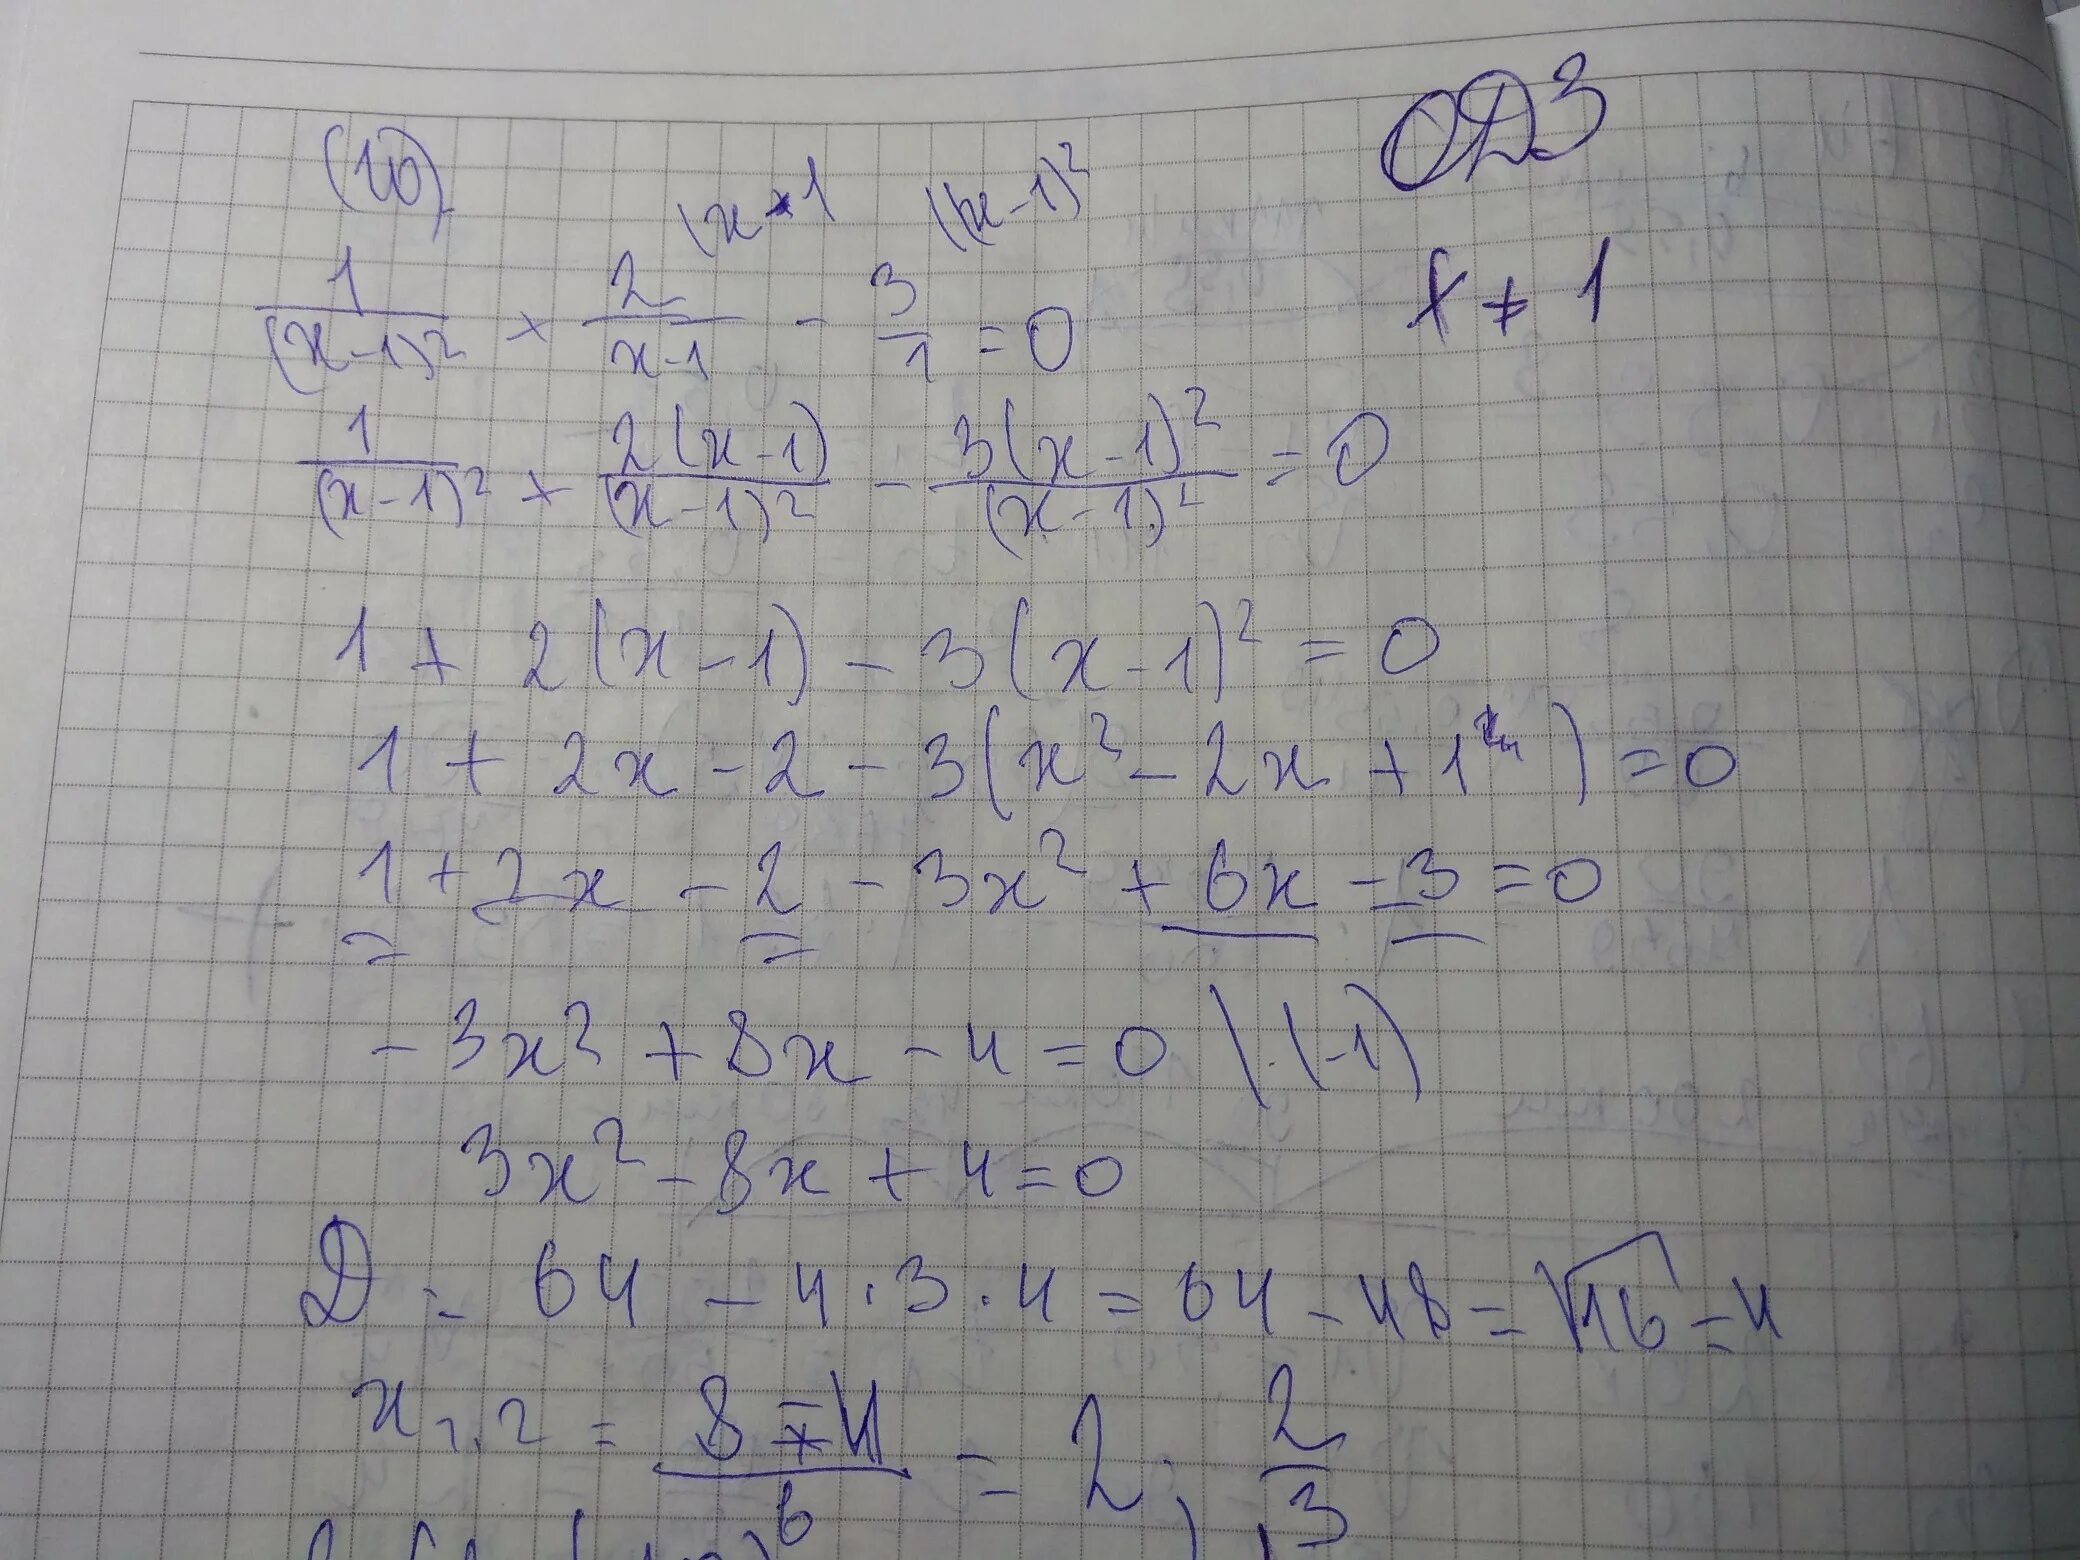 ОДЗ
(10)
(x-1 ((x-1)²
1/(x-1)² + 2/(x-1) - 3/1 = 0
x ≠ 1
1/(x-1)² + 2(x-1)/(x-1)² - 3(x-1)²/(x-1)² = 0
1 + 2(x-1) - 3(x-1)² = 0
1 + 2x - 2 - 3(x² - 2x + 1) = 0
1 + 2x - 2 - 3x² + 6x - 3 = 0
-3x² + 8x - 4 = 0 |·(-1)
3x² - 8x + 4 = 0
D = 64 - 4·3·4 = 64 - 48 = √16 = 4
x₁,₂ = (8 ∓ 4)/6 = 2; 2/3